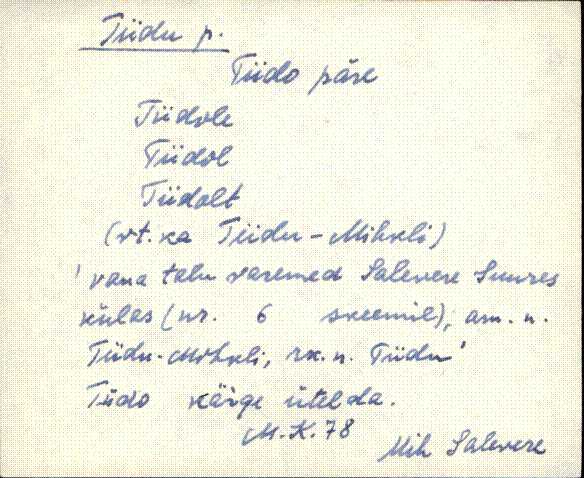 Tiidu p.
Tiido päre
Tiidole
Tiidol
Tiidolt
(vt. ka Tiidu-Mihkli)
'vana talu varemed Salevere Suures
külas (nr. 6 skeemil); am. n.
Tiidu-Mihkli, rx. n. Tiidu'
Tiido kärge ütelda.
M.K. 78
Mih Salevere